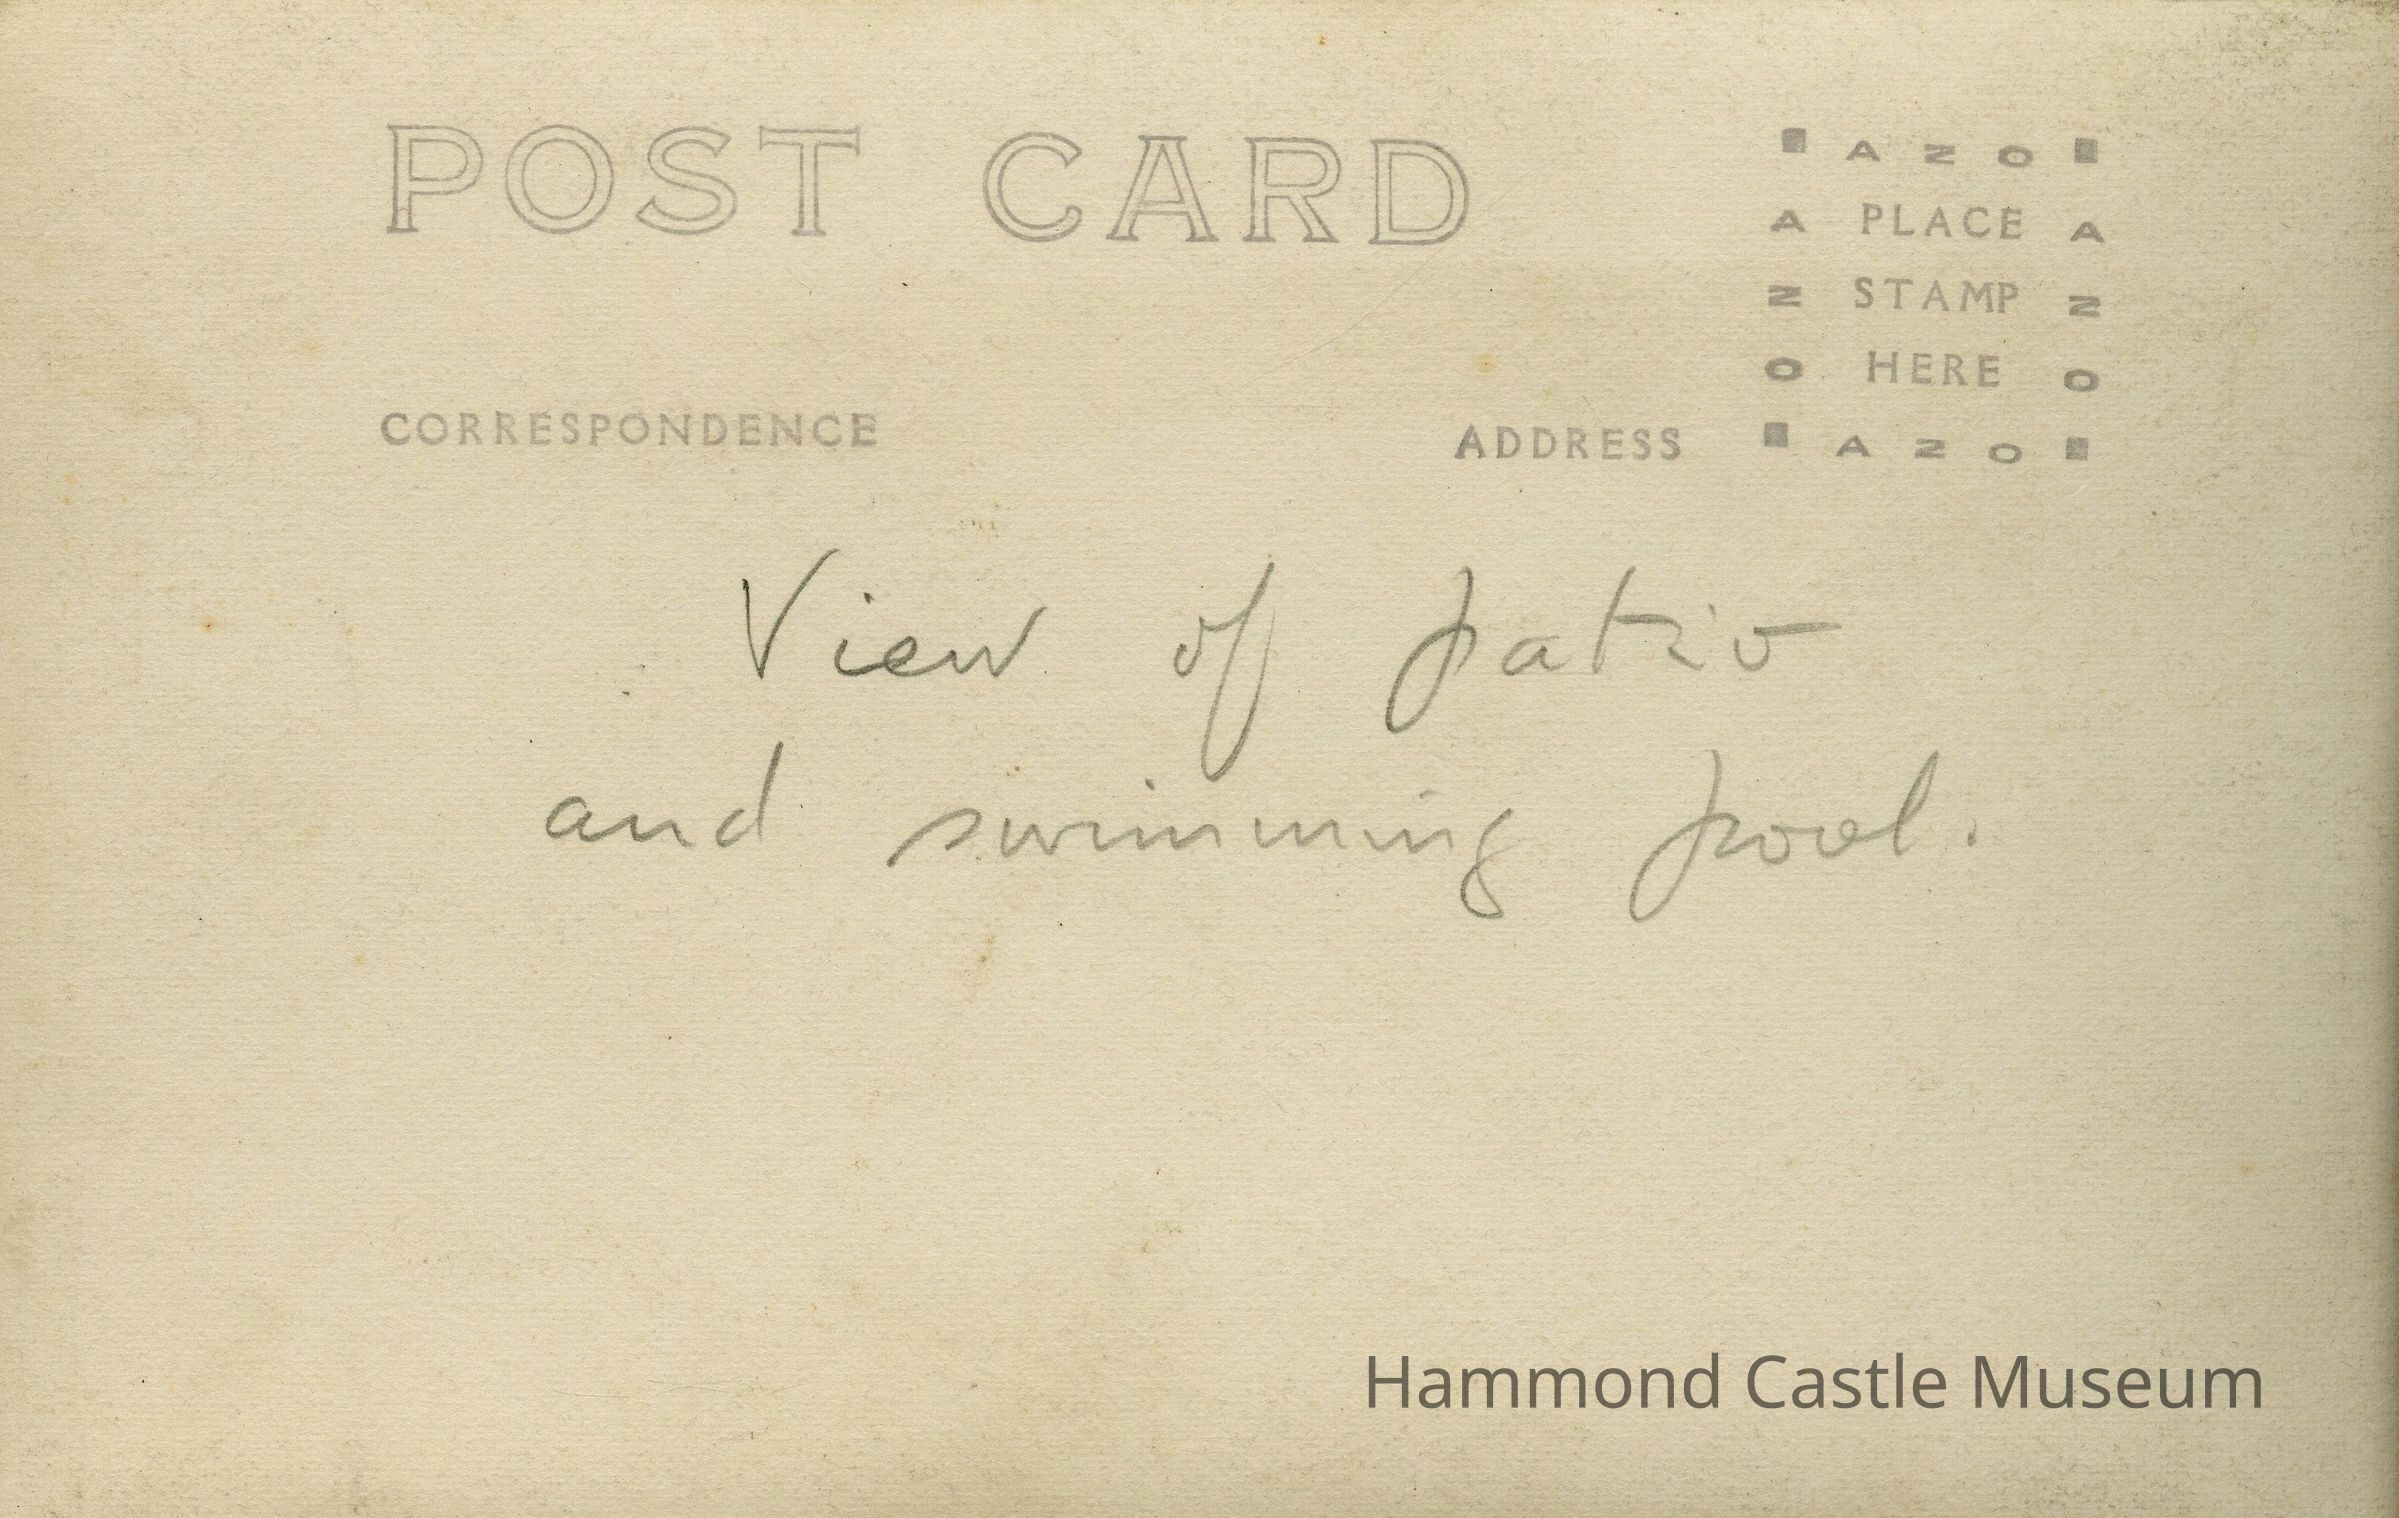 POST CARD
AZO
A PLACE A
N STAMP N
Z HERE Z
O O
AZO
CORRESPONDENCE
ADDRESS
View of patio
and swimming pool.
Hammond Castle Museum